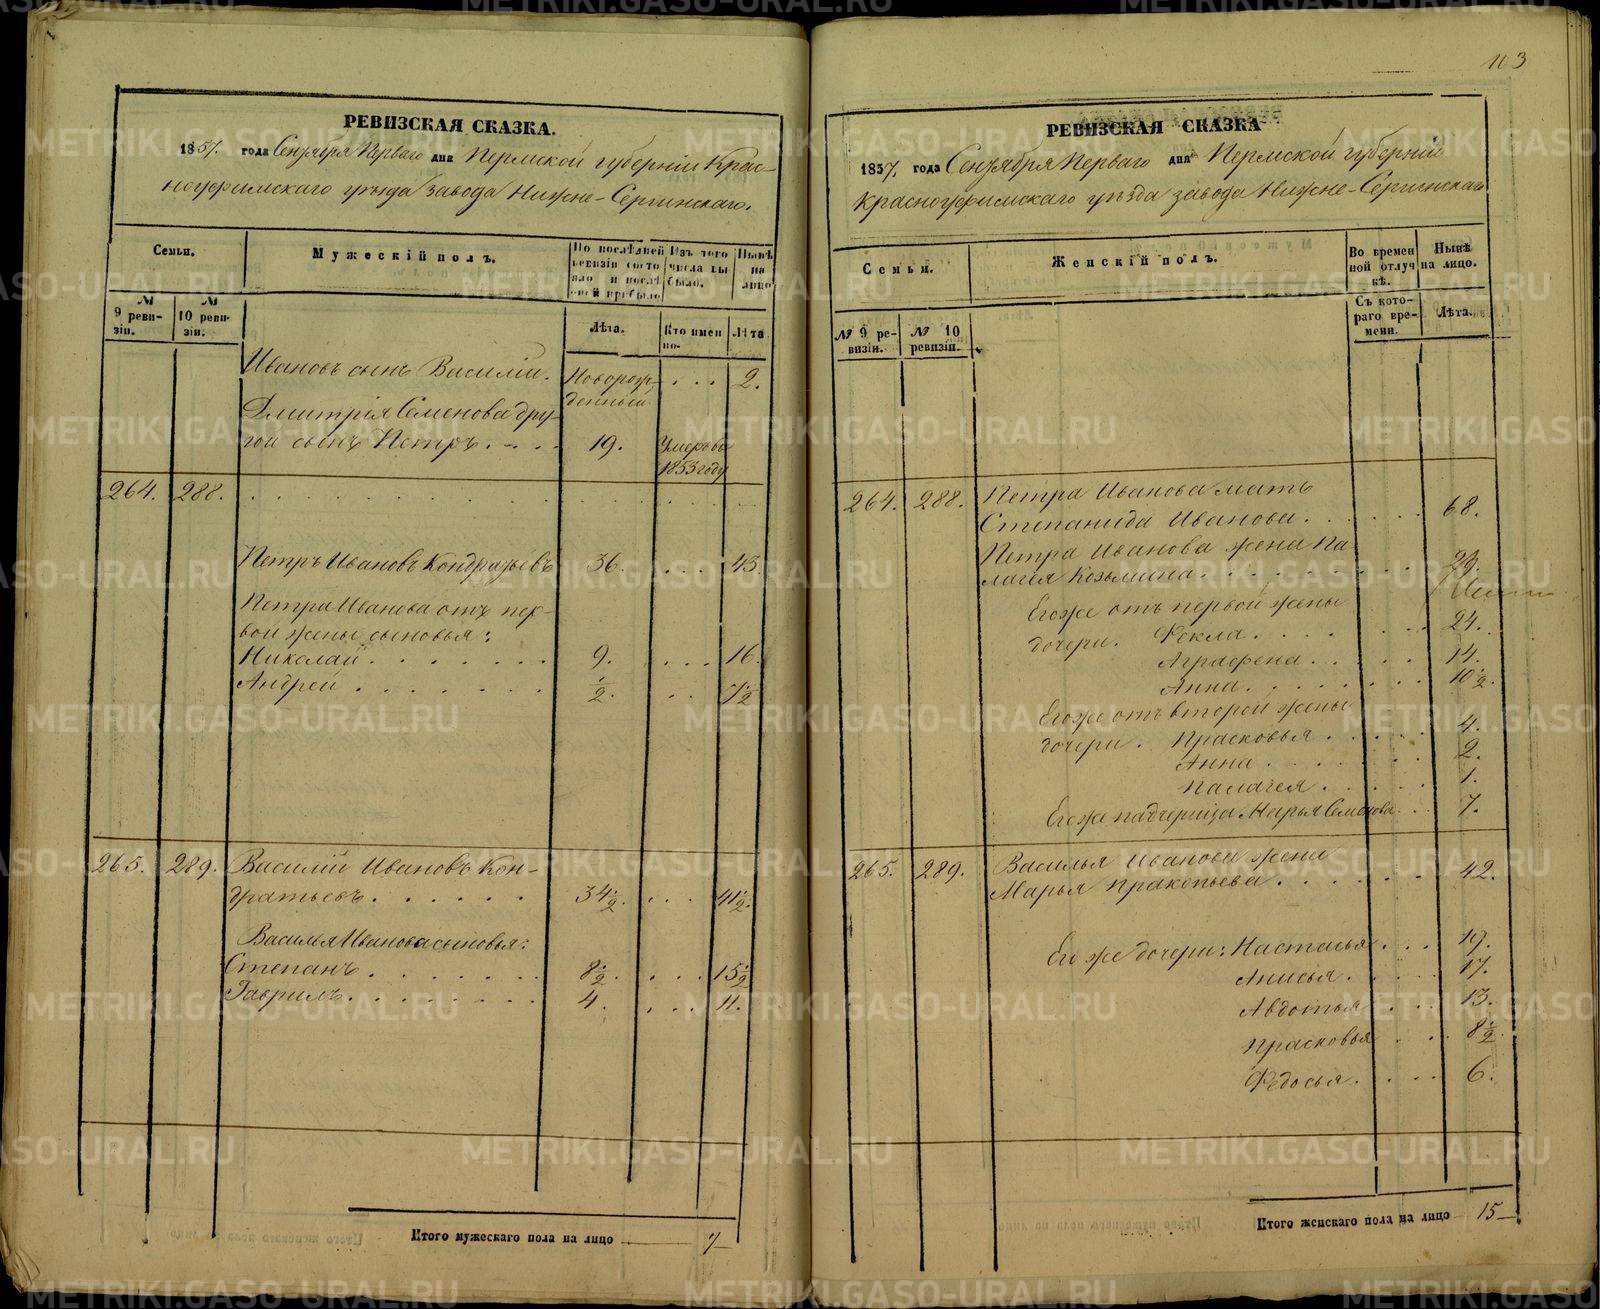 103
РЕВИЗСКАЯ СКАЗКА.
1857. года Сентября Перваго дня Пермской губерніи Крас-
ноуфимскаго уѣзда завода Нижне-Сергинскаго.
Семьи.
Мужескій полъ.
По послѣдней ревизіи состояло и послѣ оной прибыло
Изъ того числа выбыло.
Нынѣ на лицо
№ 9 реви-
зіи.
№ 10 реви-
зіи.
Лѣта.
Кто имен
но.
Лѣта
Ивановъ сынъ Василій. Новорож- . . . 2.
денный
Дмитрія Семенова дру-
гой сынъ Петръ. . . . 19. Умеръ въ
1853 году
264. 288.
Петръ Ивановъ Кондратьевъ 36. . . . 43.
Петра Иванова отъ пер-
вой жены сыновья:
Николай . . . . . . . 9. . . . 16.
Андрей . . . . . . . ½. . . 7½
265. 289. Василій Ивановъ Кон-
дратьевъ . . . . . . 34½. . . . 41½.
Василья Иванова сыновья:
Степанъ . . . . . . . 8½. . . . 15½
Гаврилъ . . . . . . . 4. . . . 11.
Итого мужескаго пола на лицо 7
РЕВИЗСКАЯ СКАЗКА
1857. года Сентября Перваго дня Пермской губерніи
Красноуфимскаго уѣзда завода Нижне-Сергинскаго
Семьи.
Женскій полъ.
Во времен
ной отлуч
кѣ.
Нынѣ
на лицо.
№ 9 ре-
визіи.
№ 10
ревизіи.
Съ кото-
раго вре-
мени.
Лѣта.
264. 288. Петра Иванова мать
Степанида Иванова . . . . . . 68.
Петра Иванова жена Па-
лагея Козьмина . . . . . . . 29.
Его же отъ первой жены
дочери. Фекла . . . . . . 24.
Аграфена . . . . . 14.
Анна . . . . . . . 10½.
Его же отъ второй жены
дочери. Прасковья . . . . . 4.
Анна . . . . . . . 2.
Палагея . . . . . 1.
Его же падчерица Марья Семенова . . 7.
265. 289. Василья Иванова жена
Марья Пракопьева . . . . . . 42.
Его же дочери: Настасья . . . 19.
Анисья . . . . . 17.
Авдотья . . . 13.
Прасковья . . . 8½.
Федосья . . . . 6.
Итого женскаго пола на лицо 15
METRIKI.GASO-URAL.RU